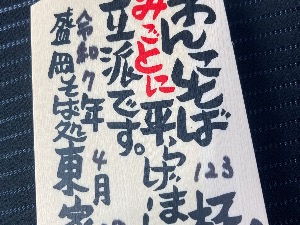 わんこそば
123杯
みごとに平らげまし
立派です。
令和7年4月
盛岡そば処東家